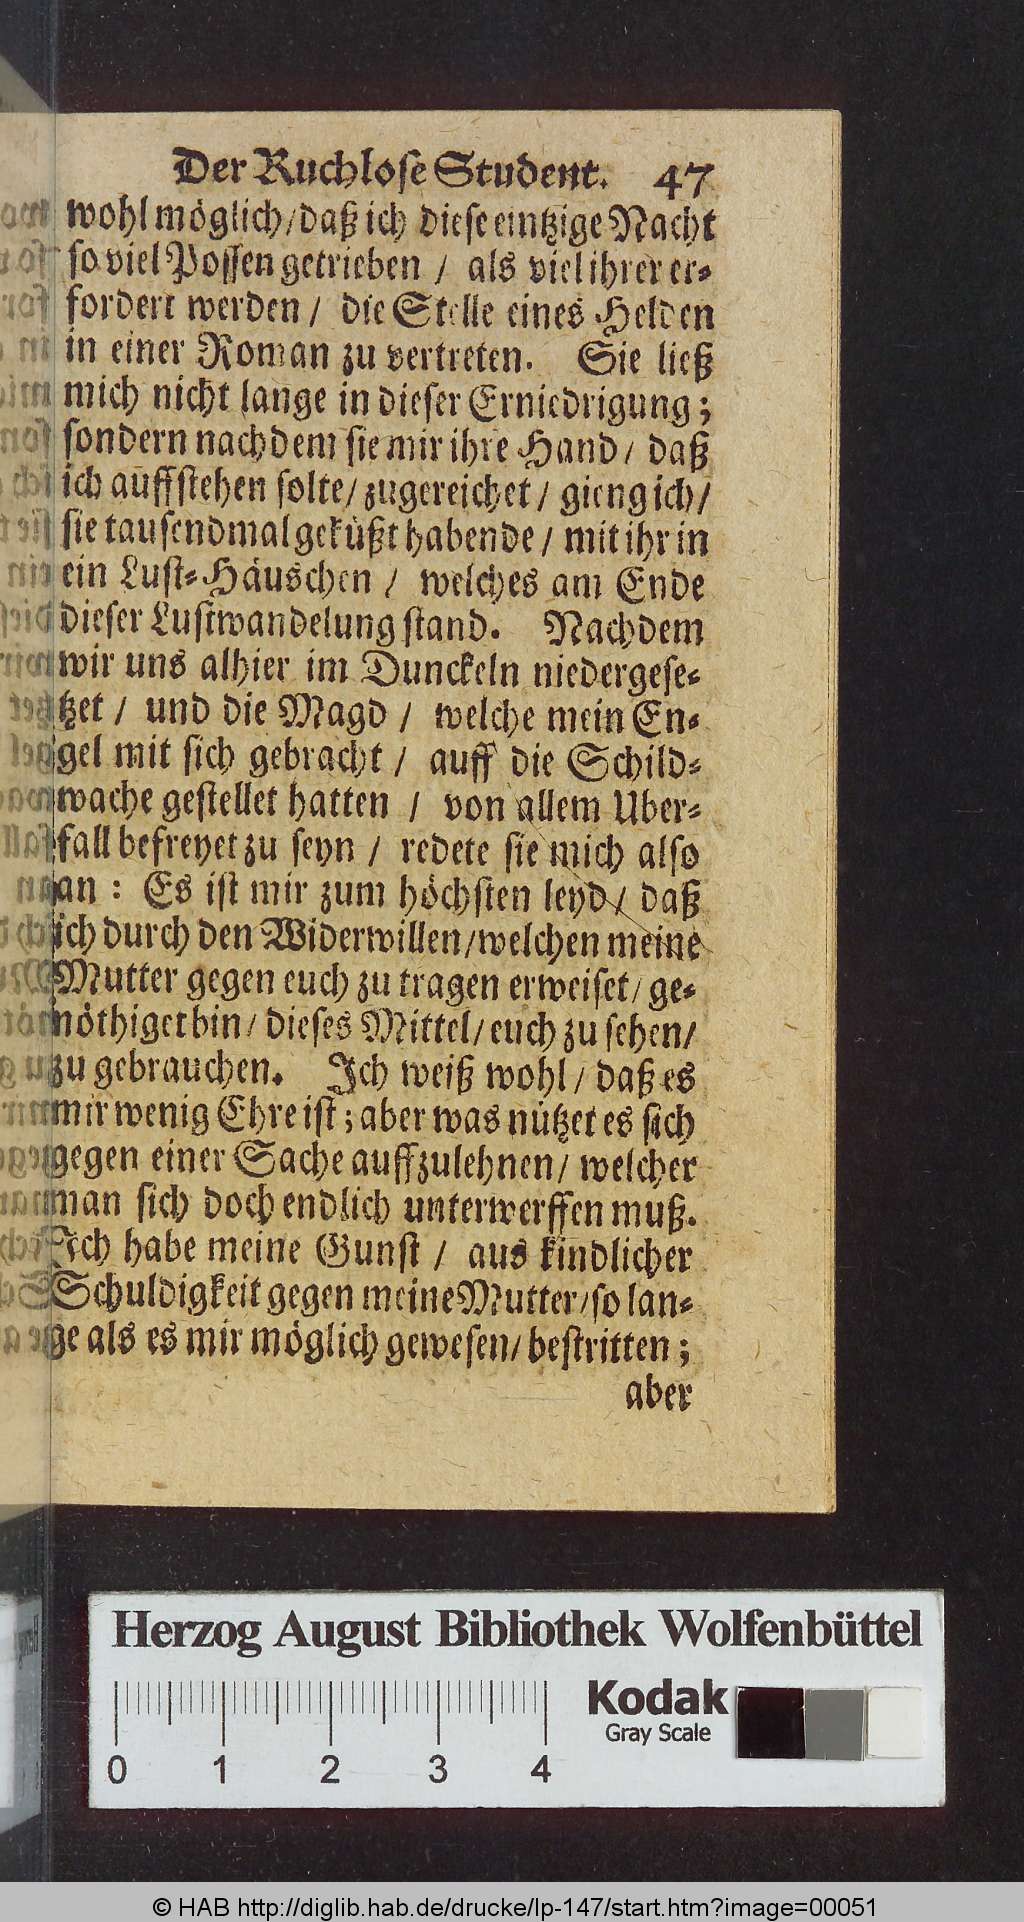 Der Ruchlose Student. 47
wohl möglich/daß ich diese eintzige Nacht
so viel Possen getrieben / als viel ihrer er-
fordert werden / die Stelle eines Helden
in einer Roman zu vertreten. Sie ließ
mich nicht lange in dieser Erniedrigung;
sondern nachdem sie mir ihre Hand / daß
ich auffstehen solte/ zugereichet / gieng ich/
sie tausendmal geküßt habende / mit ihr in
ein Lust-Häuschen / welches am Ende
dieser Lustwandelung stand. Nachdem
wir uns alhier im Dunckeln niedergese-
tzet / und die Magd / welche mein En-
gel mit sich gebracht / auff die Schild-
wache gestellet hatten / von allem Uber-
fall befreyet zu seyn / redete sie mich also
an : Es ist mir zum höchsten leyd / daß
ich durch den Widerwillen/welchen meine
Mutter gegen euch zu tragen erweiset/ ge-
nöthiget bin/ dieses Mittel/ euch zu sehen/
zu gebrauchen. Ich weiß wohl / daß es
mir wenig Ehre ist; aber was nützet es sich
gegen einer Sache auffzulehnen/ welcher
man sich doch endlich unterwerffen muß.
Ich habe meine Gunst / aus kindlicher
Schuldigkeit gegen meine Mutter/ so lan-
ge als es mir möglich gewesen/ bestritten;
aber
Herzog August Bibliothek Wolfenbüttel
Kodak
Gray Scale
0 1 2 3 4
© HAB http://diglib.hab.de/drucke/lp-147/start.htm?image=00051